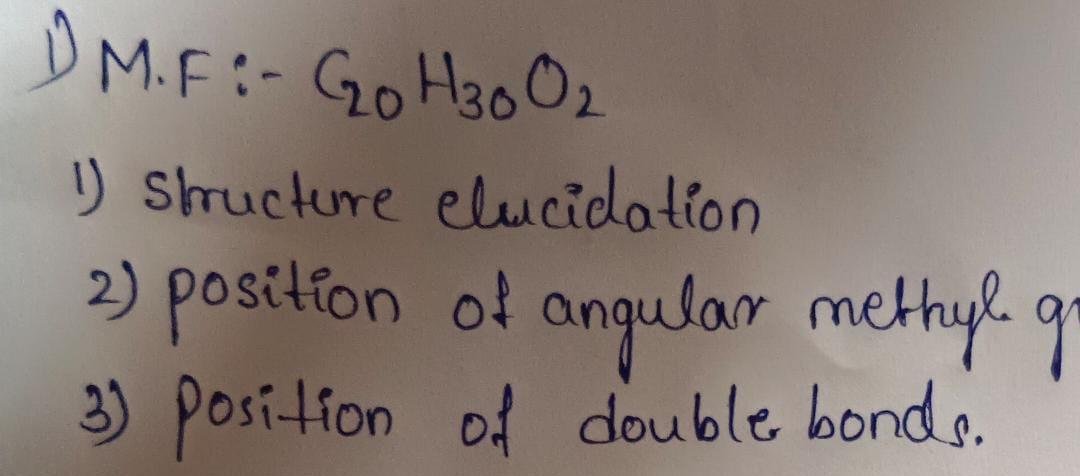 1) M.F :- C20 H30 O2
1) structure elucidation
2) position of angular methyl
3) position of double bonds.